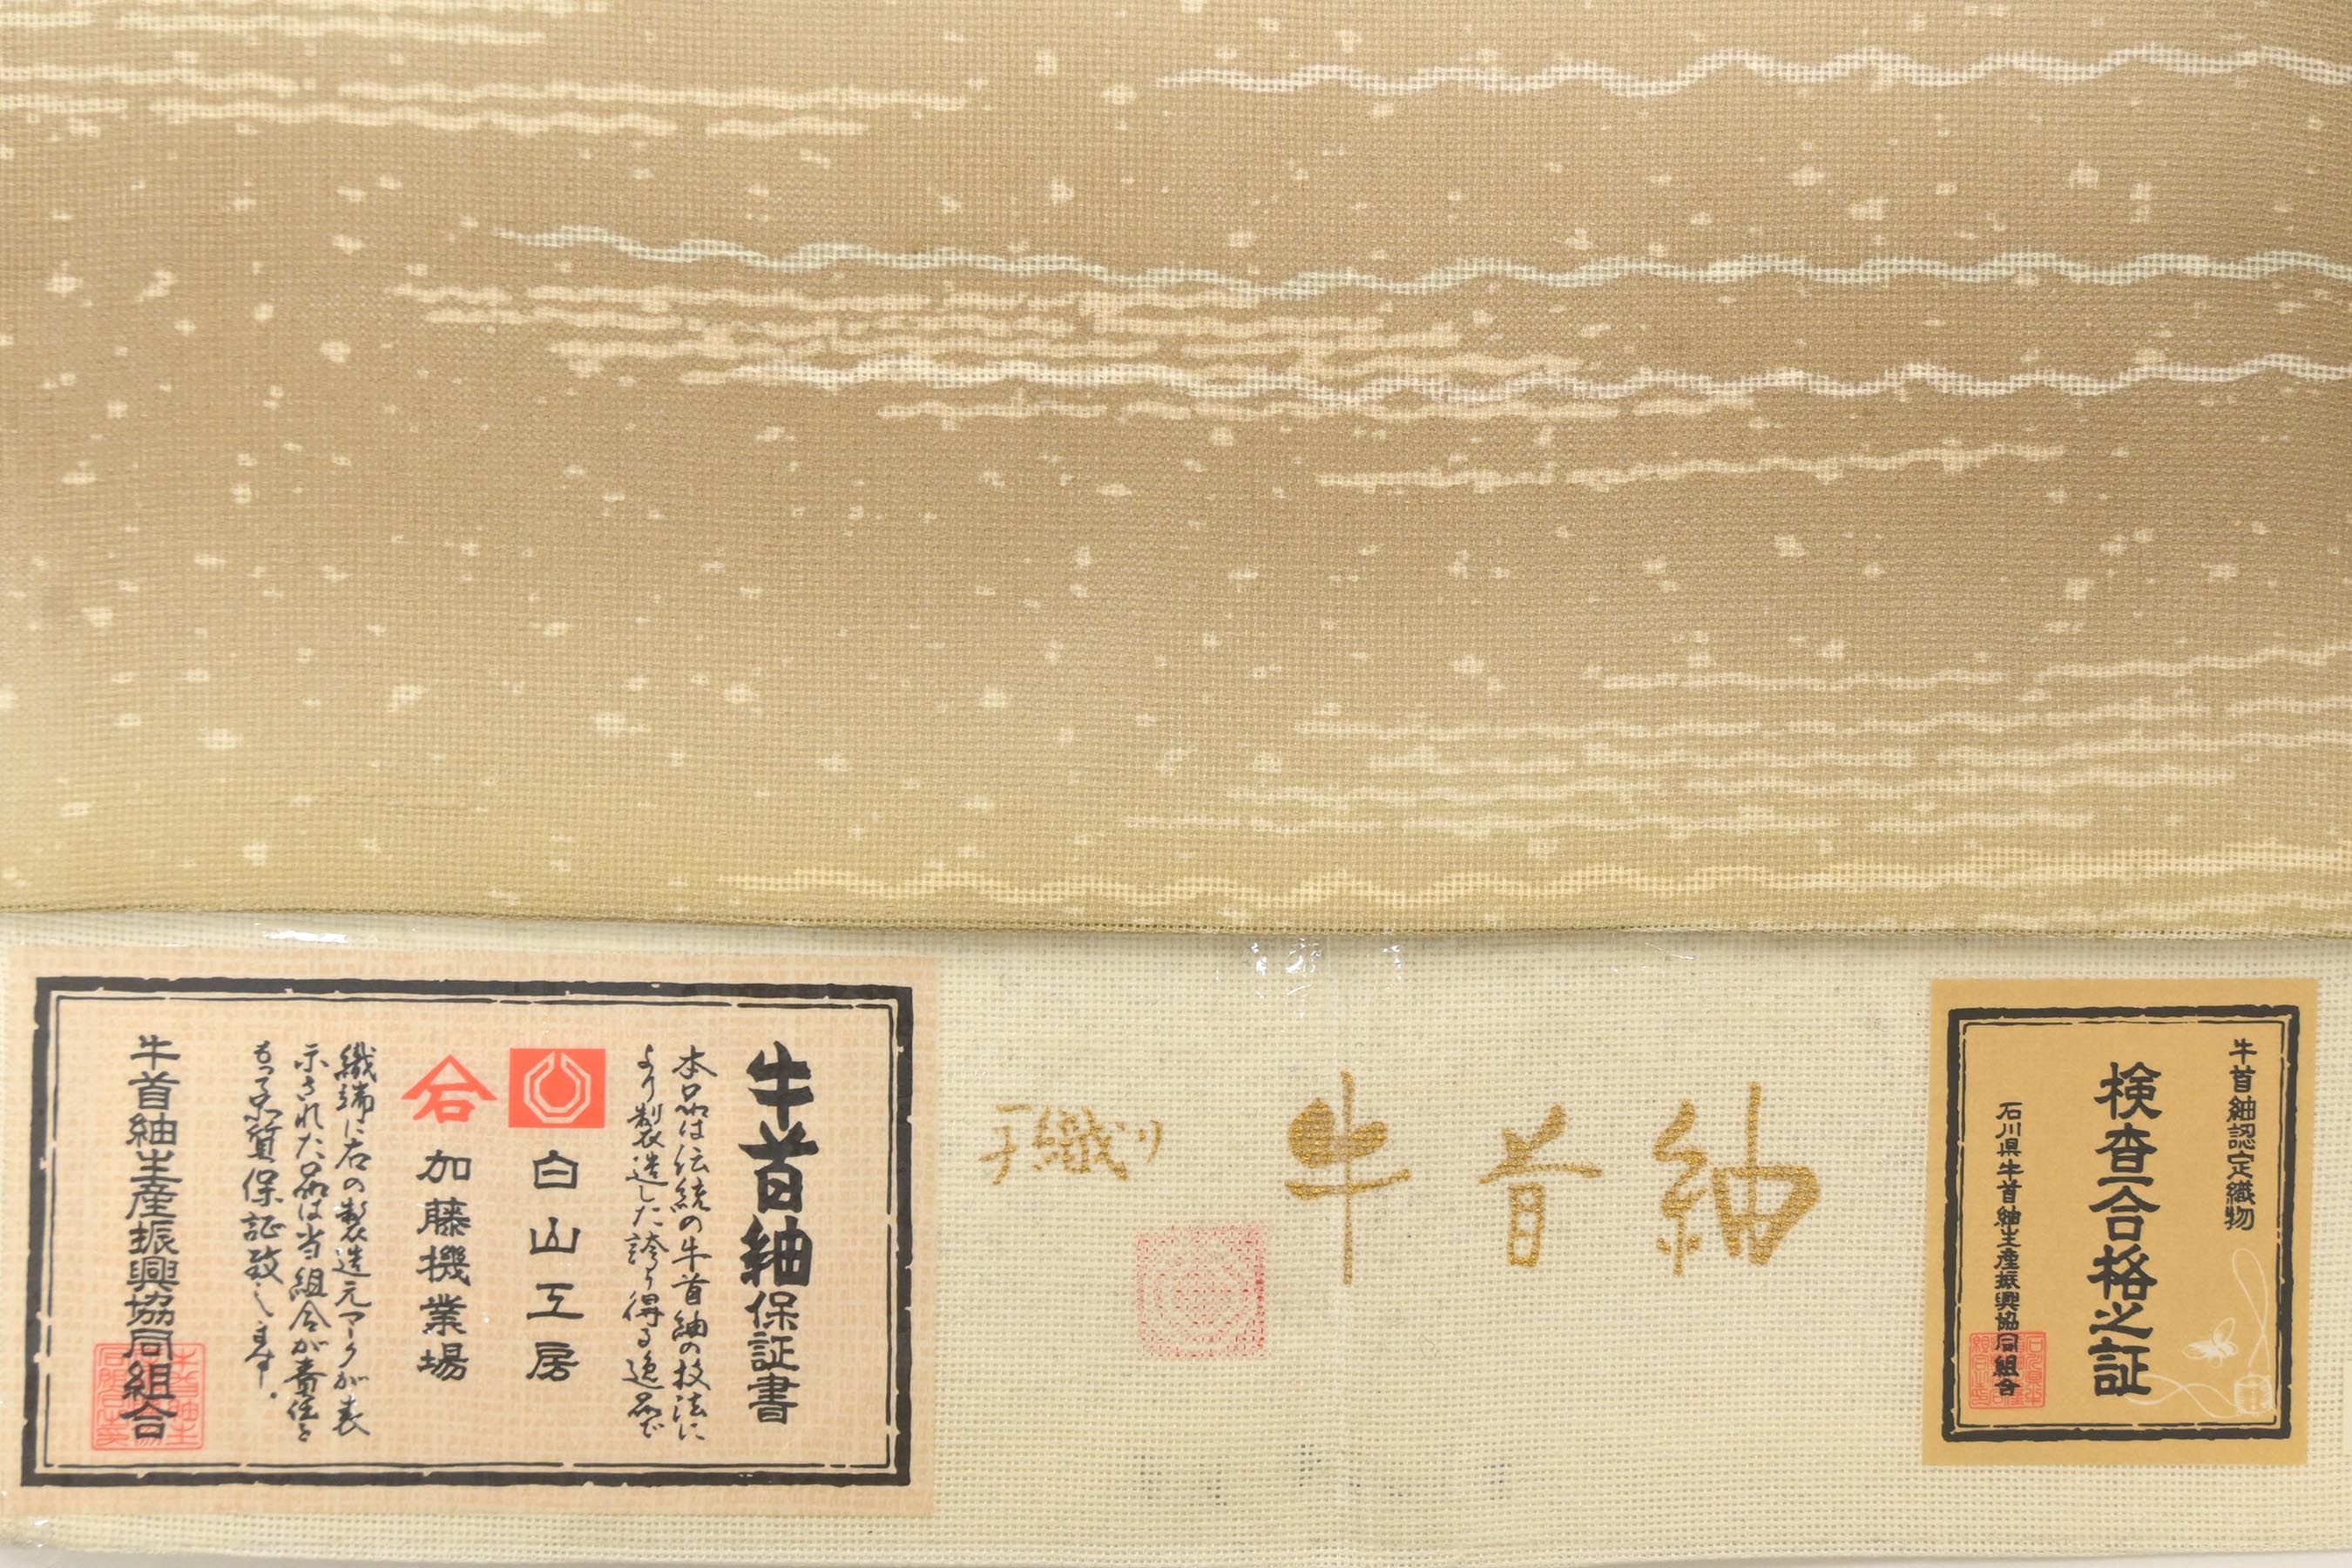 牛首紬保証書
本品は伝統の牛首紬の技法に
より製造した誇り得る逸品で
白山工房
石
加藤機業場
織端に右の製造元マークが表
示された品は当組合が責任を
もって品質保証致します。
牛首紬生産振興協同組合
手織り
牛首紬
牛首紬認定織物
検査合格之証
石川県牛首紬生産振興協同組合